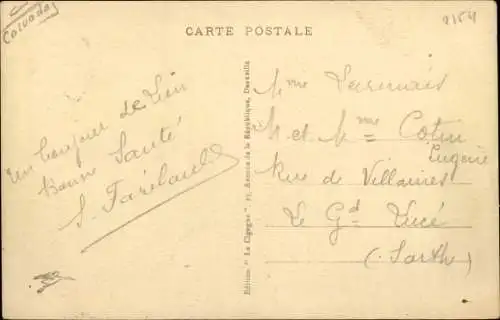 Calvados
CARTE POSTALE
2154
Un bonjour de
Bonne Santé
S.
Mme
M et Mme = Cotin
Eugène
Rue de Villaines
Le Gd Lucé
(Sarth)
Edition "La Cigogne", Avenue de la République, Deauville